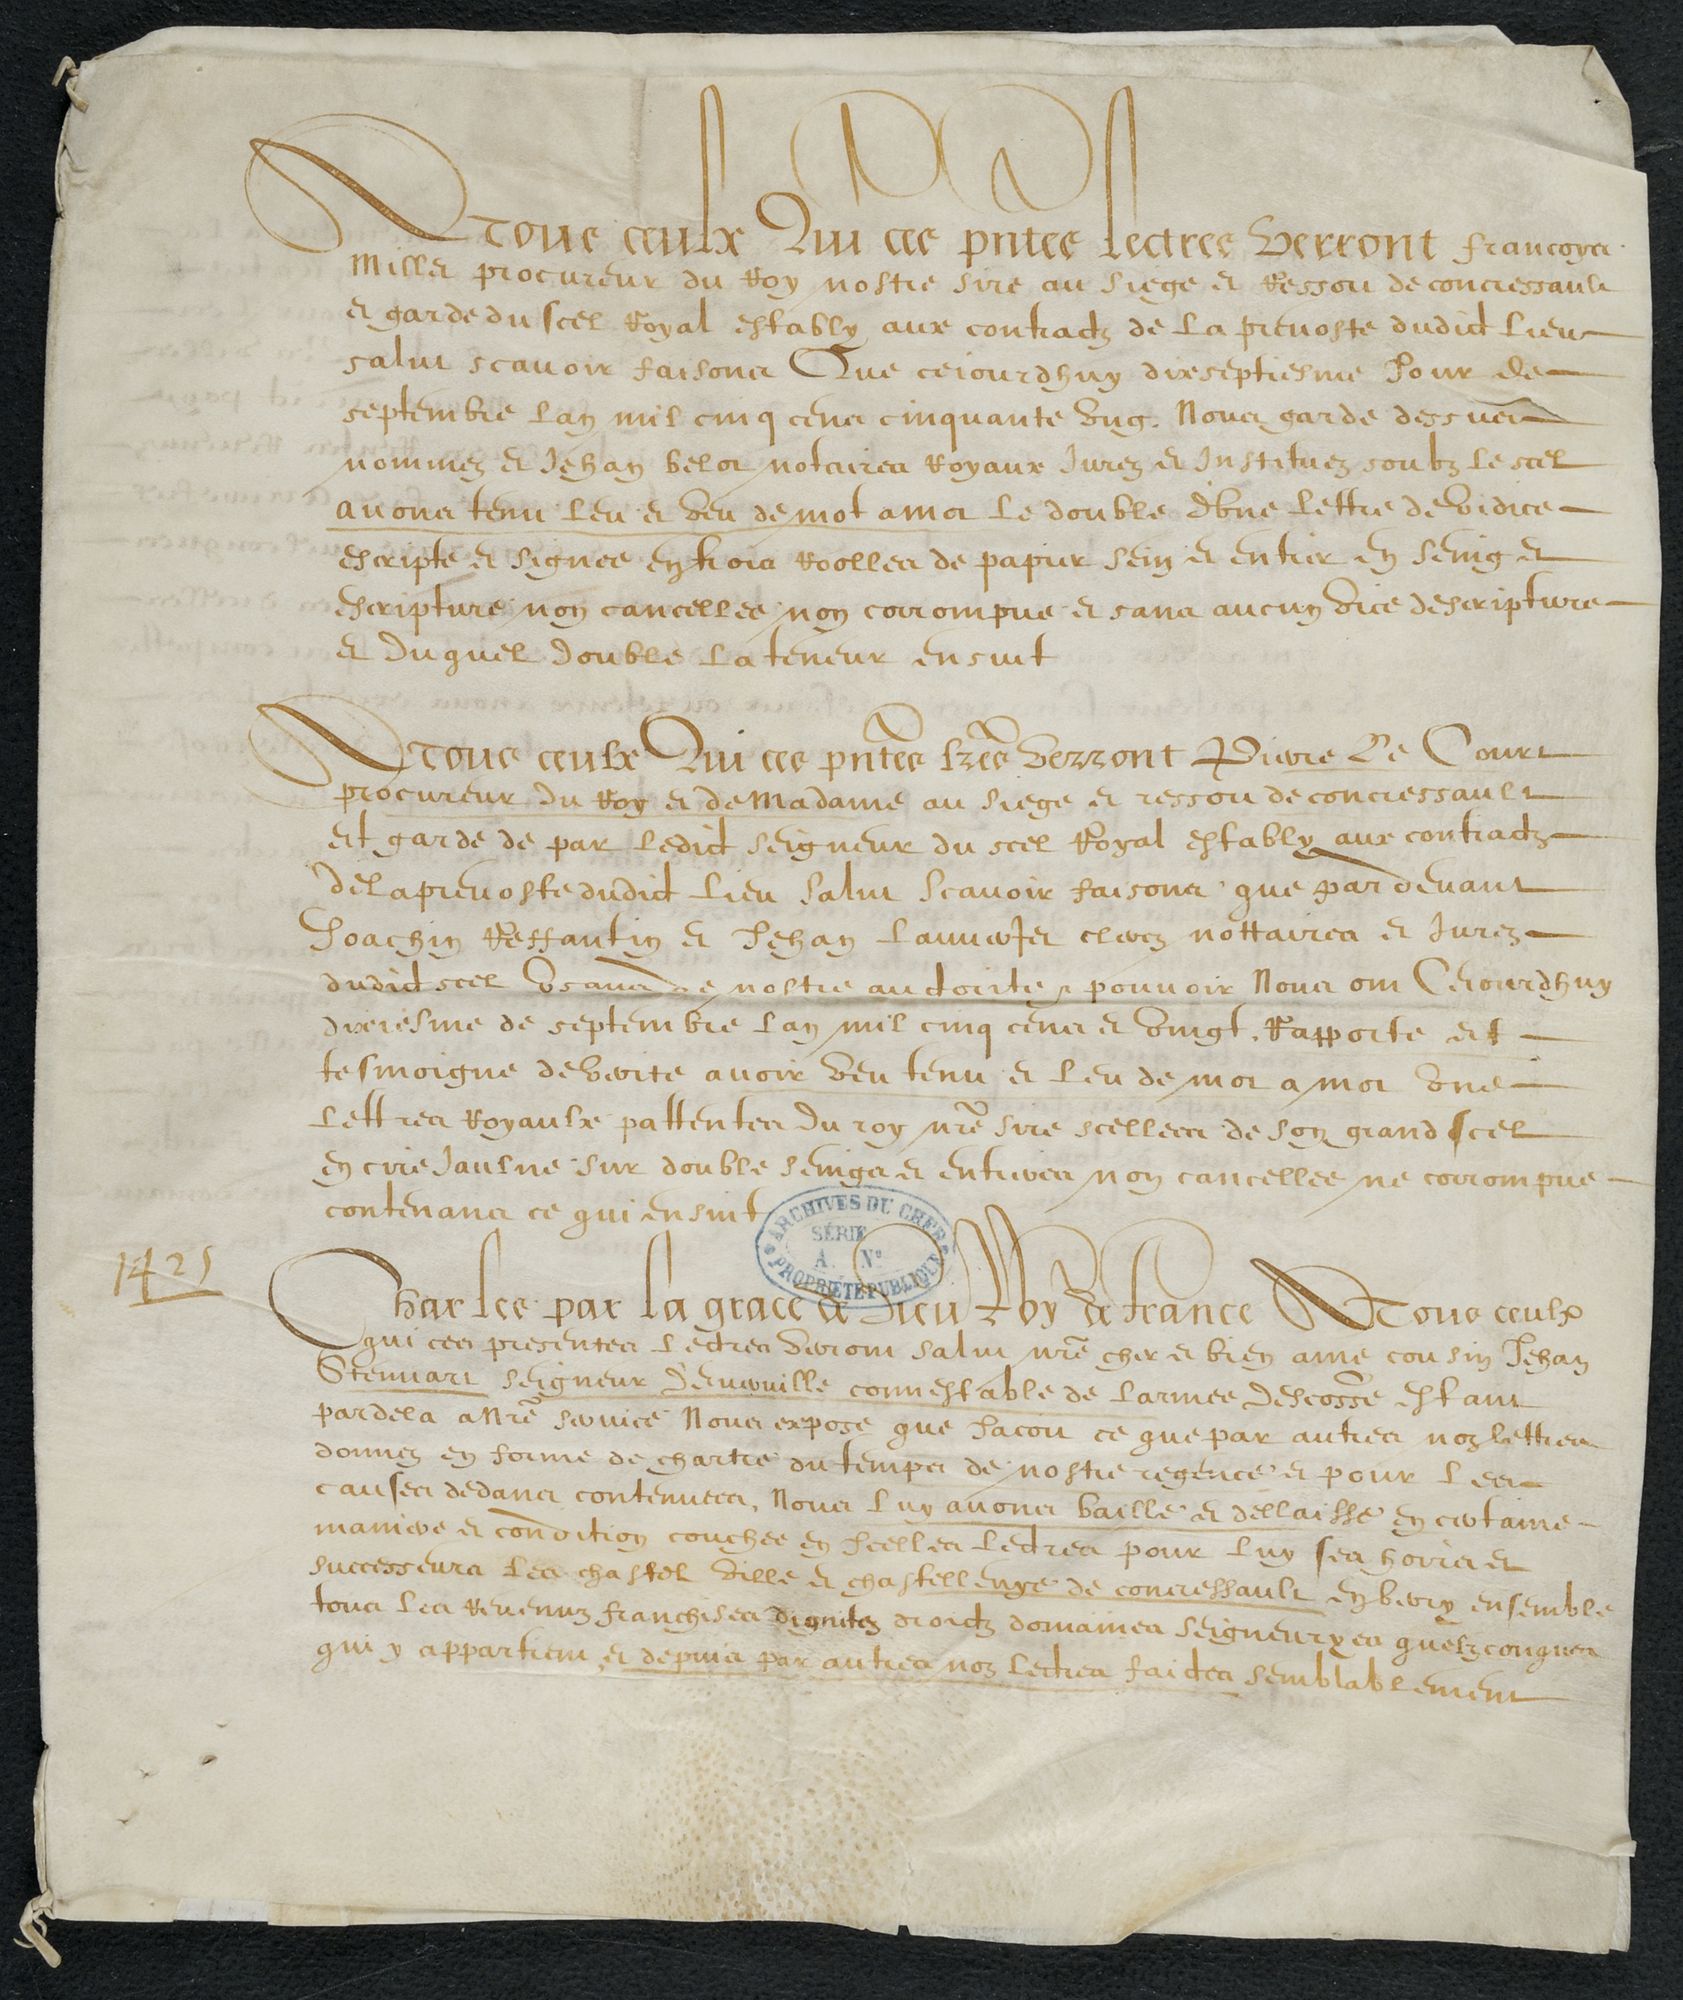 A Tous ceulx Qui ces pntes lectres Verront francoys
Millet procureur du Roy nostre sire au siege et Ressort de concressault
et garde du scel Royal estably aux contractz de la prevoste dudict lieu
salut scavoir faisons Que ceiourdhuy dixseptiesme Jour de
septembre lan mil cinq cens cinquante ung. Nous garde dessus
nommez et Jehan belot notaires Royaux Jurez et Instituez soubz le scel
avons tenu leu et veu de mot a mot le double dune lettre de vidice
escripte et signee en trois Roolles de papier sein et entier en seing et
escripture non cancellee non corrompue et sans aucun vice descripture
et duquel double la teneur ensuit
A Tous ceulx Qui ces pntes lres verront Pierre Le Court
procureur du Roy et de Madame au siege et ressort de concressault
et garde de par ledict seigneur du scel Royal estably aux contractz
de la prevoste dudict lieu salut scavoir faisons que par devant
Joachin Reffantin et Jehan clercz nottaires et Jurez
dudict scel Usans de nostre auctorite et pouvoir Nous ont Ceiourdhuy
dixiesme de septembre lan mil cinq cens et vingt. Rapporte et
tesmoigne de verite avoir veu tenu et leu de mot a mot une
lettres Royaulx pattentes du roy nre sire scellees de son grand scel
en cire Jaulne sur double seings et entieres non cancellee ne corrompue
contenans ce qui ensuit
ARCHIVES DU CHER
SÉRIE
A. N°
PROPRIÉTÉ PUBLIQUE
1421
Charles par la grace de dieu Roy de france A Tous ceulx
qui ces presentes lectres verront salut nre cher et bien ame cousin Jehan
Stenuart seigneur Dervuille connestable de larmee descosse estant
pardela a Nre service Nous expose que Jacoit ce que par autres noz lettres
donnez en forme de chartre du temps de nostre regence et pour les
causes dedans contenues, Nous luy avons baille et dellaisse en certaine
maniere et condition couchee en Jcelles lectres pour luy ses hoirs et
successeurs les chastel ville et chastellenye de concressault en berry ensemble
tous les Revenuz franchises dignitez droictz domaines seigneuryes quelzconques
qui y appartient et depuis par autres noz lectres faictes semblablement